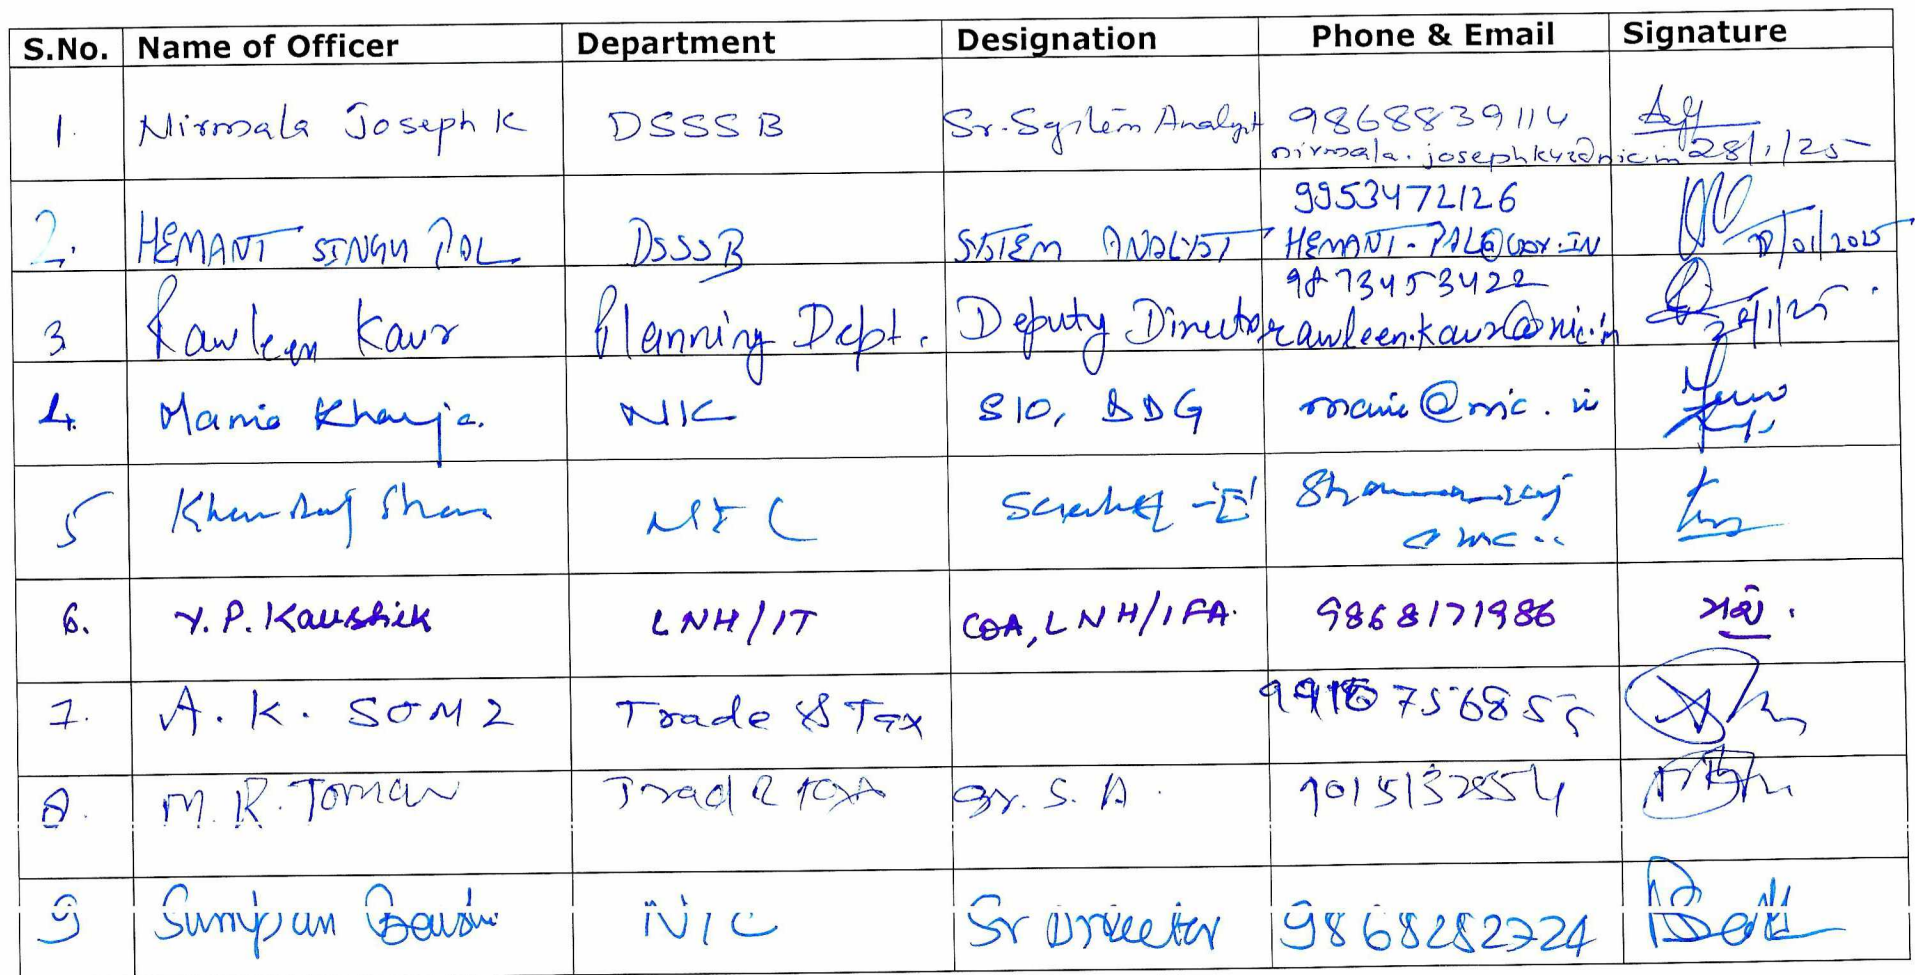 S.No. Name of Officer Department Designation Phone & Email Signature
1. Nirmala Joseph K DSSSB Sr. System Analyst 9868839114
nirmala.josephk42@nic.in 28/1/25
9953472126
2. HEMANT SINGH PAL DSSSB SYSTEM ANALYST HEMANT.PAL@GOV.IN /01/2025
9873453422
3 Rawleen Kaur Planning Dept. Deputy Director rawleen.kaur@nic.in 28/1/25
4. NIC SIO, DDG @nic.in
5 NIC Scientist -'E'
6. Y.P. Kaushik LNH/IT COA, LNH/IFA. 9868171986
7. A.K. SONI Trade & Tax 756855
8. M.R. Tomar Trade & Tax Sr. S.A.
9 NIC Sr Director 9868282724